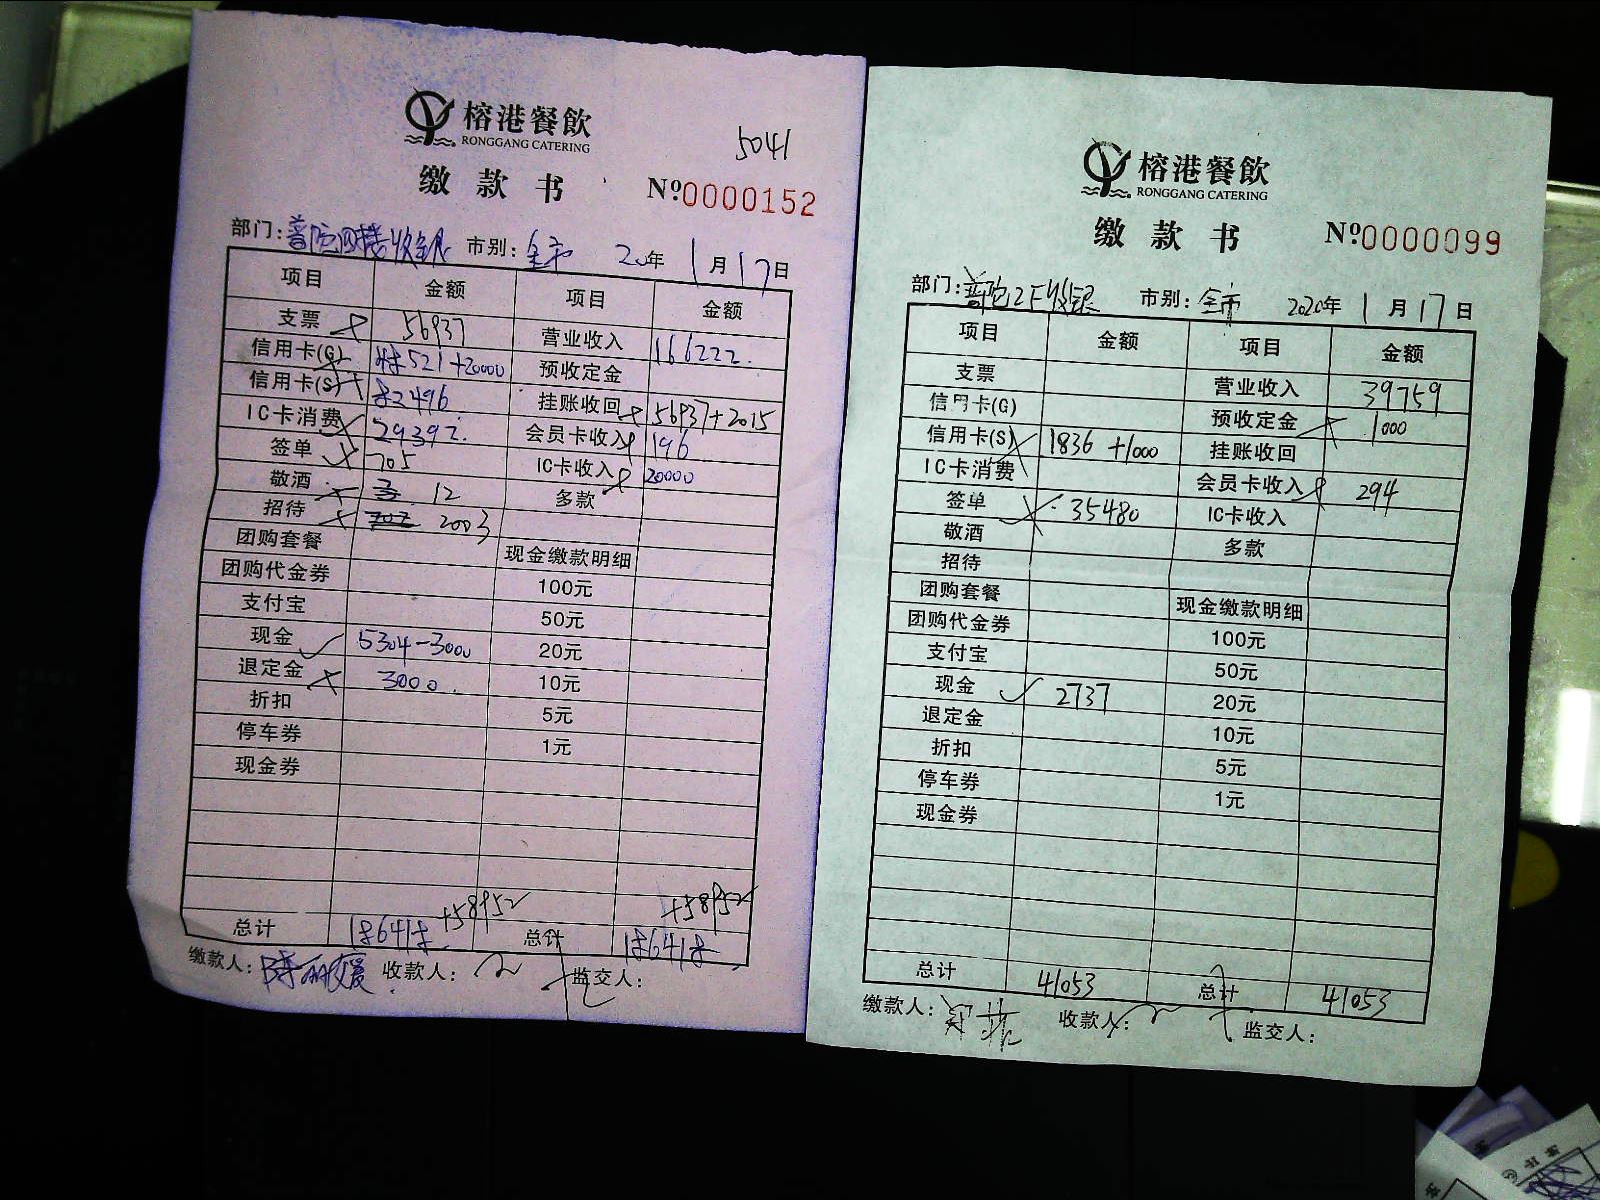 榕港餐飲
RONGGANG CATERING
5041
缴款书
Nº0000152
部门: 普陀四楼收银 市别: 全市 20年 1月17日
项目 金额 项目 金额
支票 56937 营业收入 166222.
信用卡(G) 521+20000 预收定金
信用卡(S) 82496 挂账收回 56937+2015
IC卡消费 29392. 会员卡收入 196
签单 705 IC卡收入 20000
敬酒 12 多款
招待 2003
团购套餐 现金缴款明细
团购代金券 100元
支付宝 50元
现金 5304-3000 20元
退定金 3000. 10元
折扣 5元
停车券 1元
现金券
+58952 +58952
总计 总计
缴款人: 收款人: 监交人:
榕港餐飲
RONGGANG CATERING
缴款书
Nº0000099
部门: 普陀2F收银 市别: 全市 2020年 1月17日
项目 金额 项目 金额
支票 营业收入 39759
信用卡(G) 预收定金 1000
信用卡(S) 1836+1000 挂账收回
IC卡消费 会员卡收入 294
签单 35480 IC卡收入
敬酒 多款
招待
团购套餐 现金缴款明细
团购代金券 100元
支付宝 50元
现金 2737 20元
退定金 10元
折扣 5元
停车券 1元
现金券
总计 41053 总计 41053
缴款人: 收款人: 监交人: